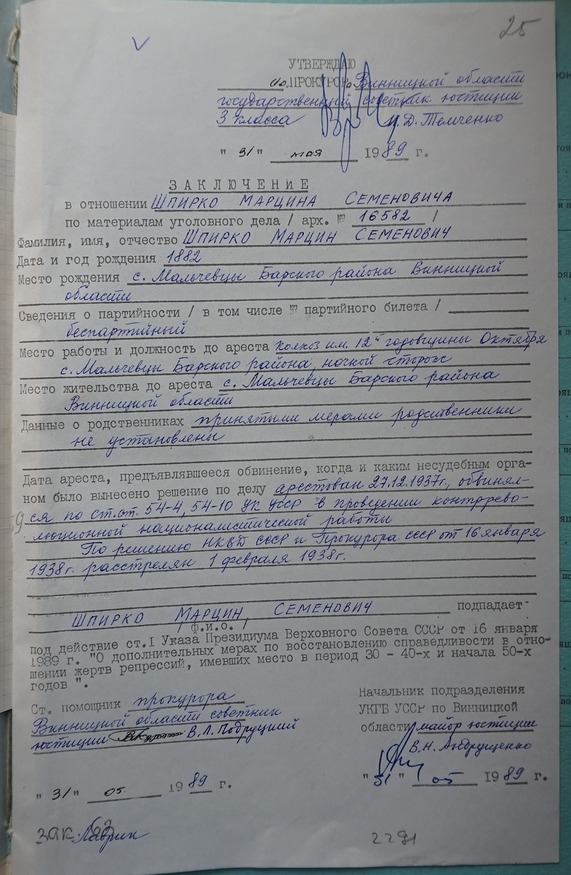 25
УТВЕРЖДАЮ
И.о. ПРОКУРОРа Винницкой области
государственный советник юстиции
3 класса И.Д. Темченко
"31" мая 1989 г.
ЗАКЛЮЧЕНИЕ
в отношении ШПИРКО МАРЦИНА СЕМЕНОВИЧА
по материалам уголовного дела / арх. № 16582 /
Фамилия, имя, отчество ШПИРКО МАРЦИН СЕМЕНОВИЧ
Дата и год рождения 1882
Место рождения с. Мальчевцы Барского района Винницкой
области
Сведения о партийности / в том числе № партийного билета /
беспартийный
Место работы и должность до ареста Колхоз им. 12й годовщины Октября
с. Мальчевцы Барского района ночной сторож
Место жительства до ареста с. Мальчевцы Барского района
Винницкой области
Данные о родственниках принятыми мерами родственники
не установлены
Дата ареста, предъявлявшееся обвинение, когда и каким несудебным орга-
ном было вынесено решение по делу арестован 27.12.1937г., обвинял-
ся по ст.ст. 54-4, 54-10 УК УССР в проведении контррево-
люционной националистической работы
По решению НКВД СССР и Прокурора СССР от 16 января
1938 г. расстрелян 1 февраля 1938г.
ШПИРКО МАРЦИН СЕМЕНОВИЧ подпадает
Ф.и.о.
под действие ст.I Указа Президиума Верховного Совета СССР от 16 января
1989 г. "О дополнительных мерах по восстановлению справедливости в отно-
шении жертв репрессий, имевших место в период 30 - 40-х и начала 50-х
годов ".
Ст. помощник прокурора
Винницкой области советник
юстиции В.Л. Подруцкий
"31" 05 1989 г.
Начальник подразделения
УКГБ УССР по Винницкой
области майор юстиции
В.Н. Андрущенко
"31" 05 1989 г.
зак.
2291